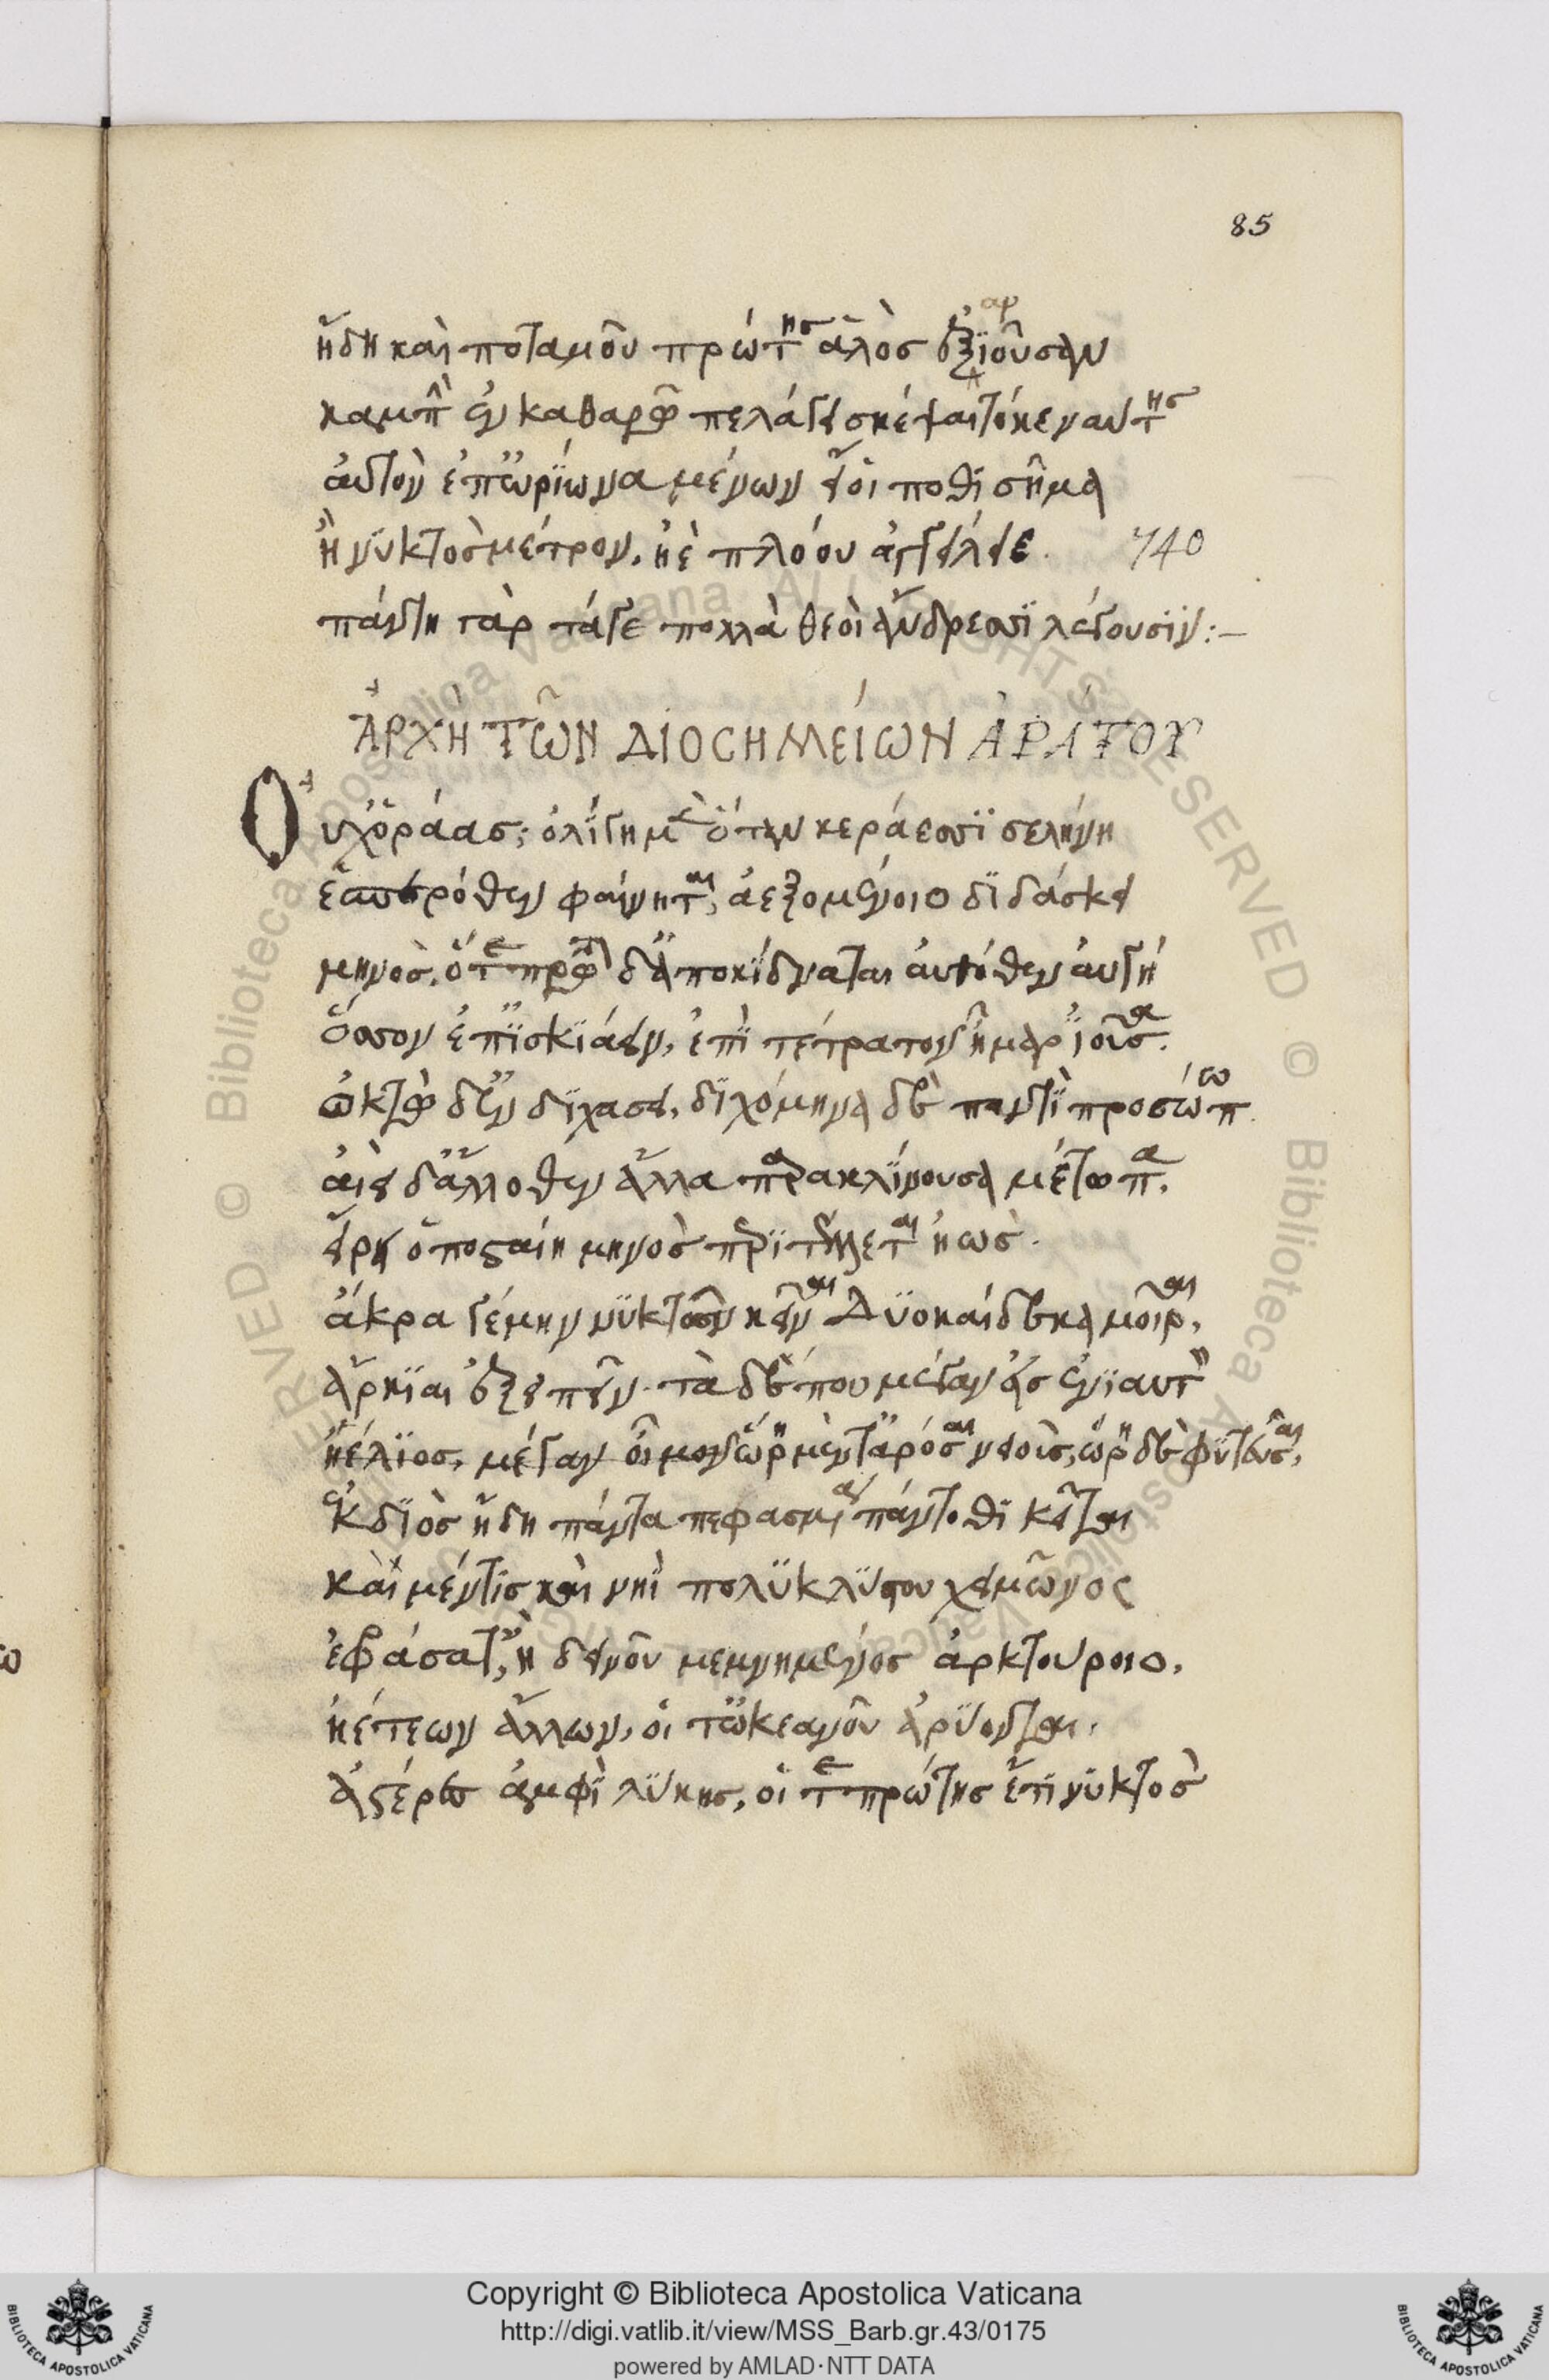 85
αρ
ἤδη καὶ ποταμοῦ πρώτης ἁλὸς ἐξιοῦσαν
καμπῆ ἐν καθαρῷ πελάγει σκέψαιτό κεν αὐτης
αὐτὸν ἐπ' ὠρίωνα μένων εἴ οἱ ποθι σῆμα
ἢ νυκτὸς μέτρον, ἠὲ πλόου ἀγγείλειε. 740
πάντη γὰρ τάγε πολλὰ θεοὶ ἄνδρεσσι λέγουσιν:–
ἈΡΧῊ ΤΩ͂Ν ΔΙΟCΗΜΕΊΩΝ ἈΡΆΤΟΥ
Οὐχ ὁράας; ὀλίγη μὲν ὅταν κεράεσσι σελήνη
ἑσπερόθεν φαίνηται, ἀεξομένοιο διδάσκει
μηνὸς, ὅτε πρώτη δ' ἀποκίδναται αὐτόθεν αὐγή
ὅσσον ἐπισκιάειν, ἐπὶ τέτρατον ἦμαρ ἰοῦσα.
ὀκτὼ δ' ἐν δίχασει, διχόμηνα δὲ παντὶ προσώπω.
ἀιεὶ δ' ἄλλοθεν ἄλλα παρακλίνουσα μέτωπα,
εἴρη ὁποσταίη μηνὸς περιτέλλεται ἠώς.
ἄκρα γέμην νυκτῶν κεῖναι Δυοκαίδεκα μοῖραι,
ἄρκιαι ἐξειπεῖν. τὰ δέ που μέγαν εἰς ἐνιαυτὸν
ἠέλιος, μέγαν οἱ μονώρη μέντ' ἀρόσαι νειοῖς, ὥρη δὲ φυτεῦσαι,
ἐκ διὸς ἤδη πάντα πεφασμένα πάντοθι κεῖται
καὶ μέν τις καὶ νηὶ πολυκλύστου χειμῶνος
ἐφράσατ', ἢ δεινοῦ μεμνημένος ἀρκτούροιο,
ἠέ τεων ἄλλων, οἵ τ' ὠκεανοῦ ἀρύονται,
ἀστέρες ἀμφὶ λύκης, οἵ τε πρώτης ἔτι νυκτὸς
Copyright © Biblioteca Apostolica Vaticana
http://digi.vatlib.it/view/MSS_Barb.gr.43/0175
powered by AMLAD·NTT DATA